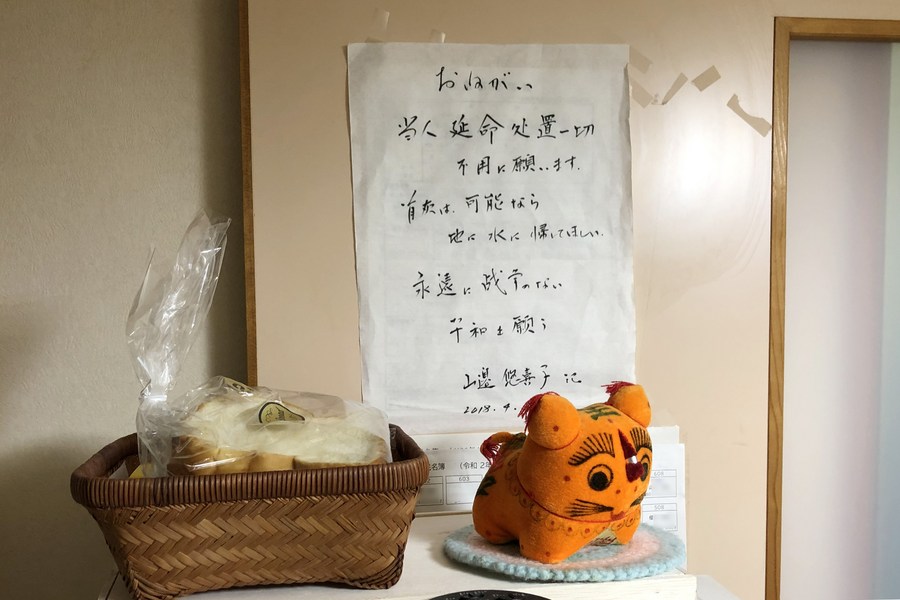 おねがい
当人 延命 处置一切
不用に願います。
骨灰は、可能なら
地に 水に 帰してほしい。
永遠に 战争のない
平和を願う
山邉 悠喜子 记
2018.4.
名簿 (令和2年
603
508